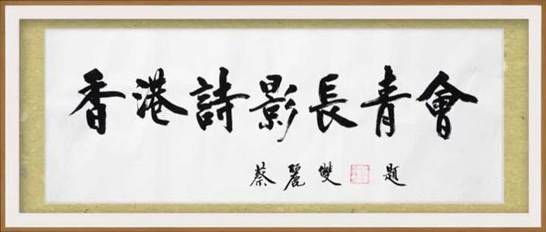 香港詩影長青會
蔡麗雙 題